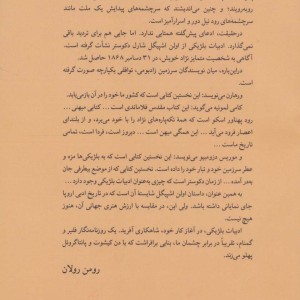 روبه‌رویند؛ و چنین می‌اندیشند که سرچشمه‌های پیدایش یک ملت مانند
سرچشمه‌های رود نیل دور و اسرارآمیز است.
درحقیقت، ادعای پیش‌گفته همتایی ندارد. اما جایی هم برای تردید باقی
نمی‌گذارد. ادبیات بلژیکی از اولن اشپیگل شارل دکوستر نشأت گرفته است.
آگاهی به شخصیت متمایز نژاد خویش، در ۳۱ دسامبر ۱۸۶۸ حاصل شد.
دراین‌باره، میان نویسندگان سرزمین زادبومی، توافقی یکپارچه صورت گرفته
است.
ورهارن می‌نویسد: این نخستین کتابی است که کشور ما خود را در آن بازمی‌یابد.
کامی لمونیه می‌گوید: این کتاب مقدس فلاماندی است... کتابی میهنی...
رود پهناور اسکو است که همهٔ تکه‌پاره‌های نژاد را با خود می‌برد، و از بلندای
اعصار فرود می‌آید... این همگی میهن است... دیروز است، فردا است، تمامی
تاریخ است.
و موریس دزومبیو می‌نویسد: این نخستین کتابی است که به بلژیکی‌ها مزه و
عطر سرزمین خود و تبار خود را داده است... همچنین از موضع بیطرفی جان
بدر آمد... از زمان دکوستر است که چیزی به‌عنوان ادبیات بلژیکی وجود دارد...
به همین عنوان، داستان اولن اشپیگل شایستهٔ آن است که در تاریخ ادبی اروپا
جای نمایانی داشته باشد. ولی این، در مقایسه با ارزش هنری جهانی آن، هنوز
هیچ نیست.
ادبیات بلژیکی، در آغاز کار خود، شاهکاری آفرید. یک روزنامه‌نگار فقیر و
گمنام، تقریباً در برابر چشمان ما، بنایی برافراشت که با دن کیشوت و پانتاگروئل
پهلو می‌زند.
رومن رولان